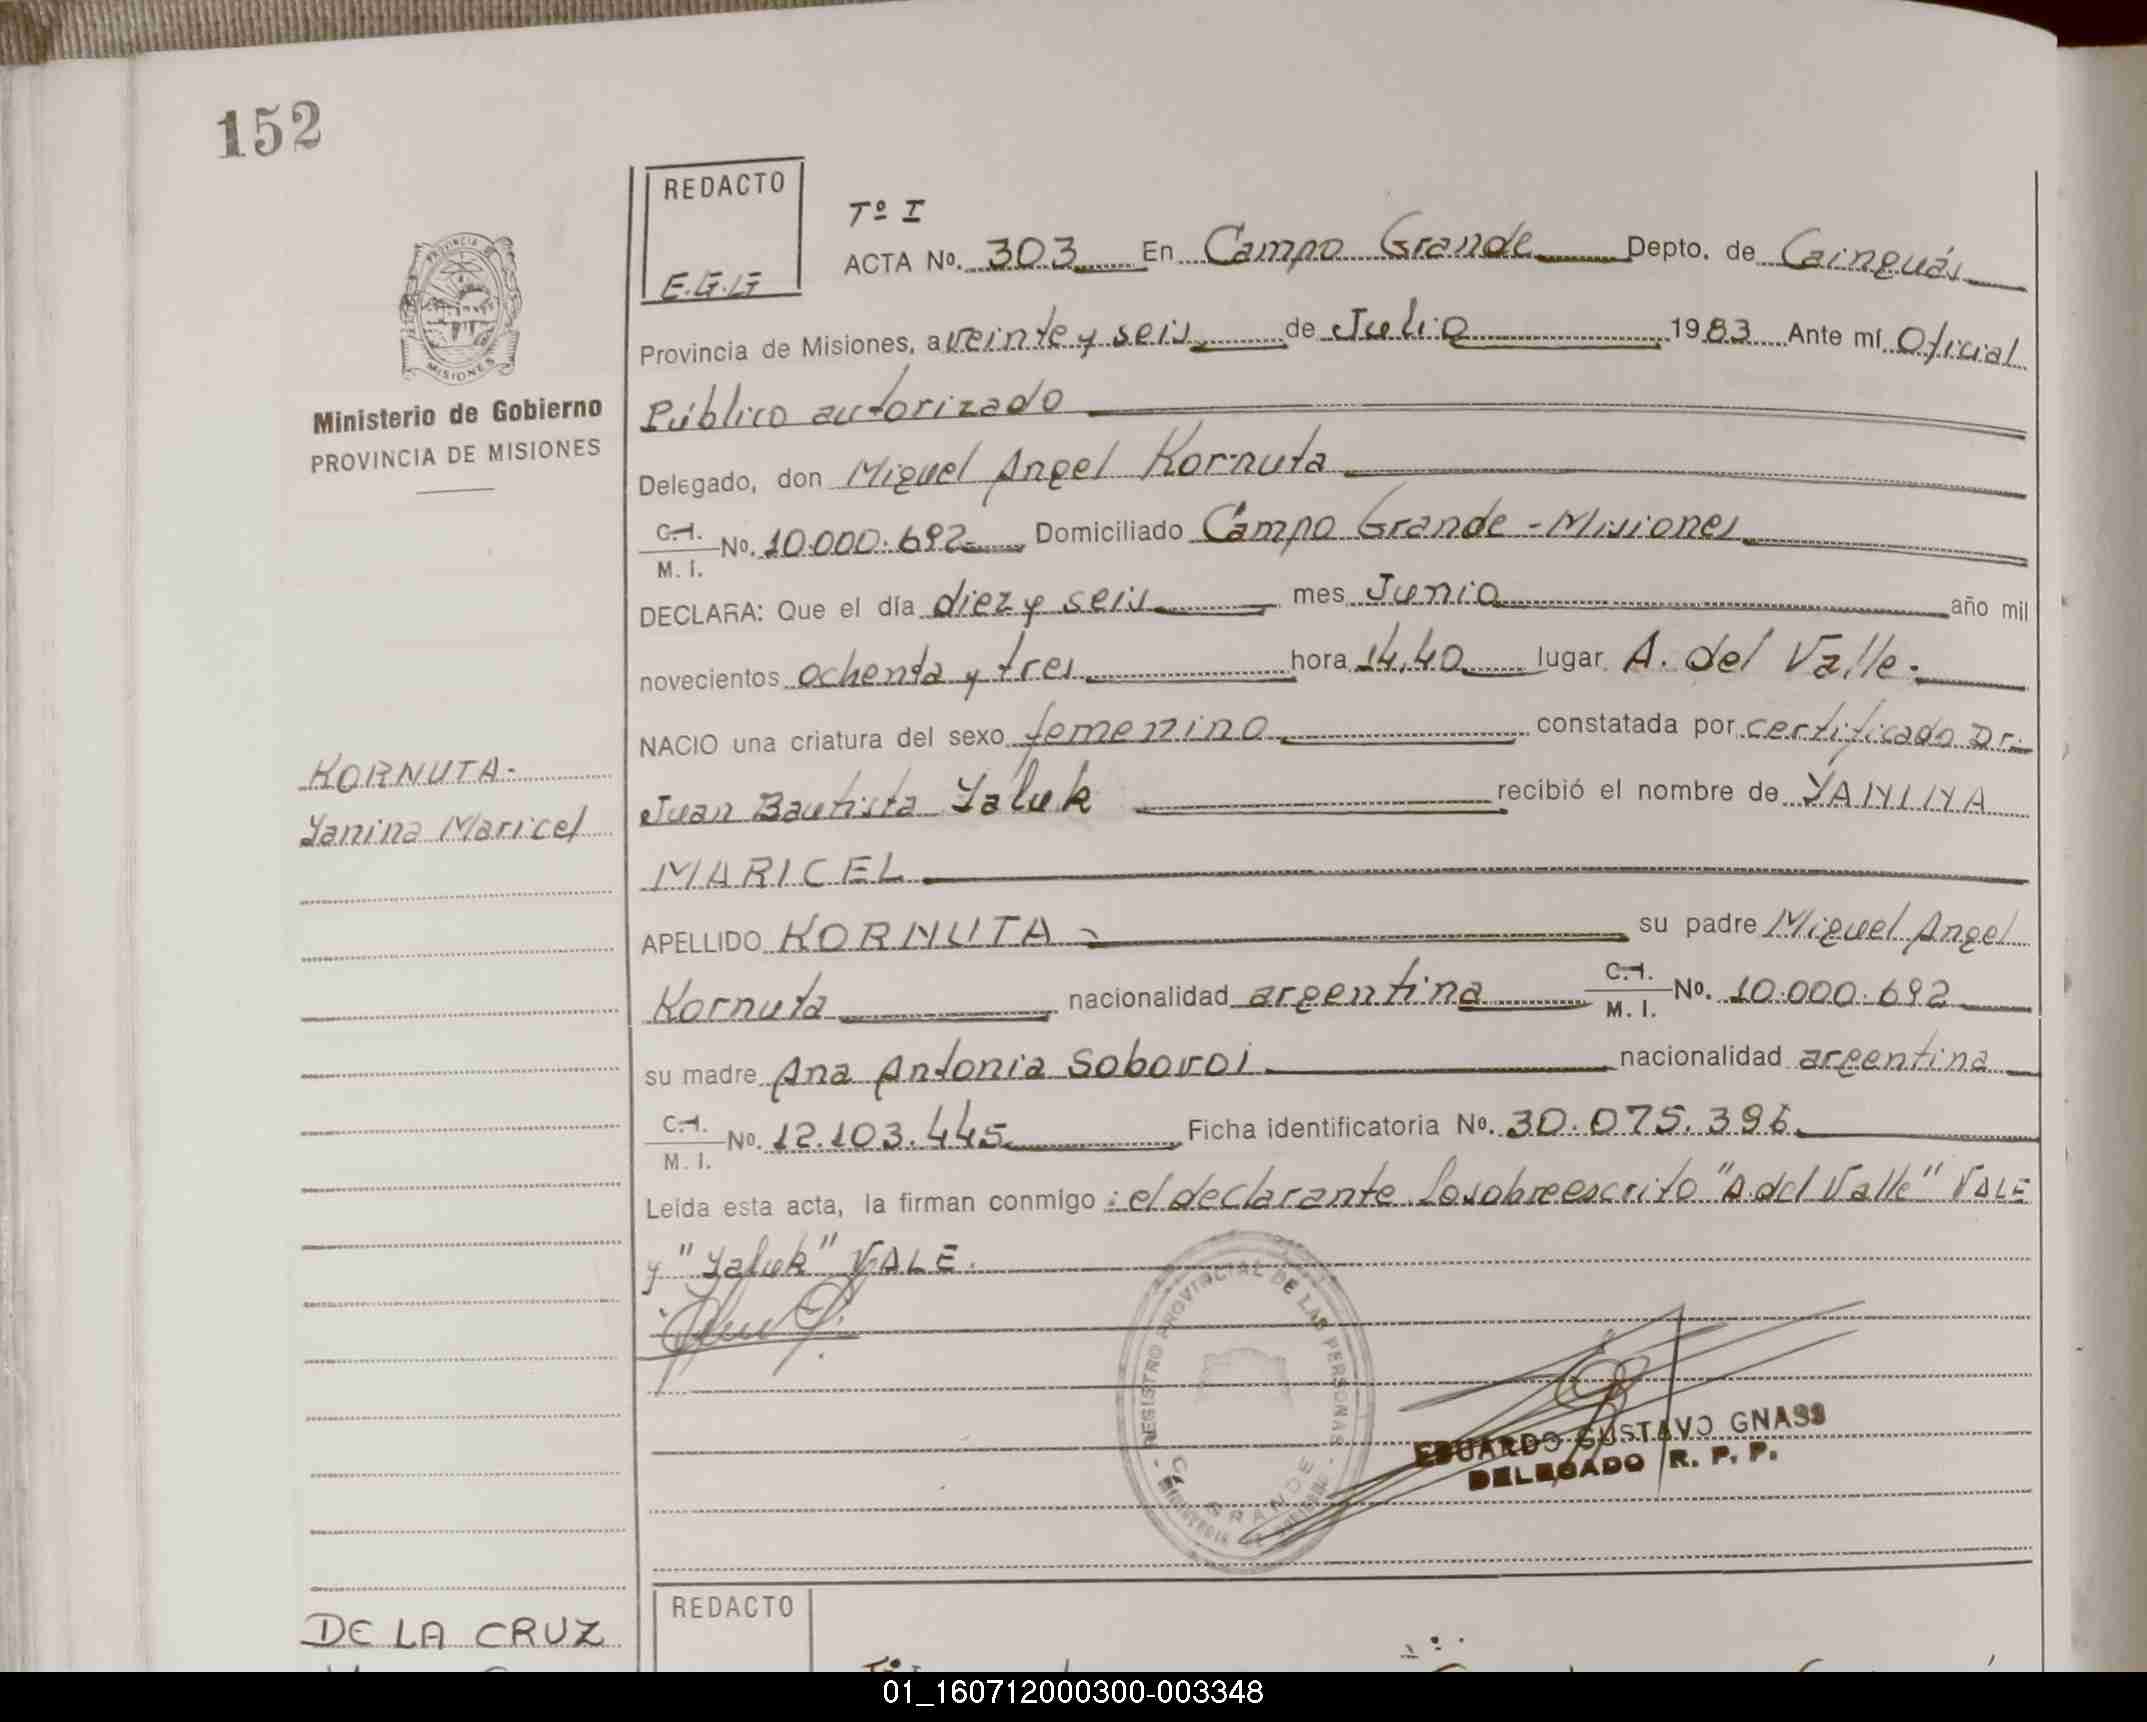 152
REDACTO
E.G.G
Tº I
ACTA No. 303 En Campo Grande Depto. de Cainguás
Provincia de Misiones, a veinte y seis de Julio 1983 Ante mí Oficial
Público autorizado
Ministerio de Gobierno
PROVINCIA DE MISIONES
PROVINCIA DE
MISIONES
Delegado, don Miguel Angel Kornuta
C.I.
M. I. No. 10.000.692 Domiciliado Campo Grande - Misiones
DECLARA: Que el día diez y seis mes Junio año mil
novecientos ochenta y tres hora 14,40 lugar A. del Valle.
NACIO una criatura del sexo femenino constatada por certificado Dr.
KORNUTA.
Yanina Maricel
Juan Bautista Yaluk recibió el nombre de YANINA
MARICEL
APELLIDO KORNUTA su padre Miguel Angel
Kornuta nacionalidad argentina C.I. M. I. No. 10.000.692
su madre Ana Antonia Soboroi nacionalidad argentina
C.I. M. I. No. 12.103.445 Ficha identificatoria No. 30.075.396
Leída esta acta, la firman conmigo: el declarante Lo sobreescrito "A. del Valle" VALE
y "Yaluk" VALE.
REGISTRO PROVINCIAL DE LAS PERSONAS
GRANDE
EDUARDO GUSTAVO GNASS
DELEGADO R. P. P.
REDACTO
DE LA CRUZ
01_160712000300-003348